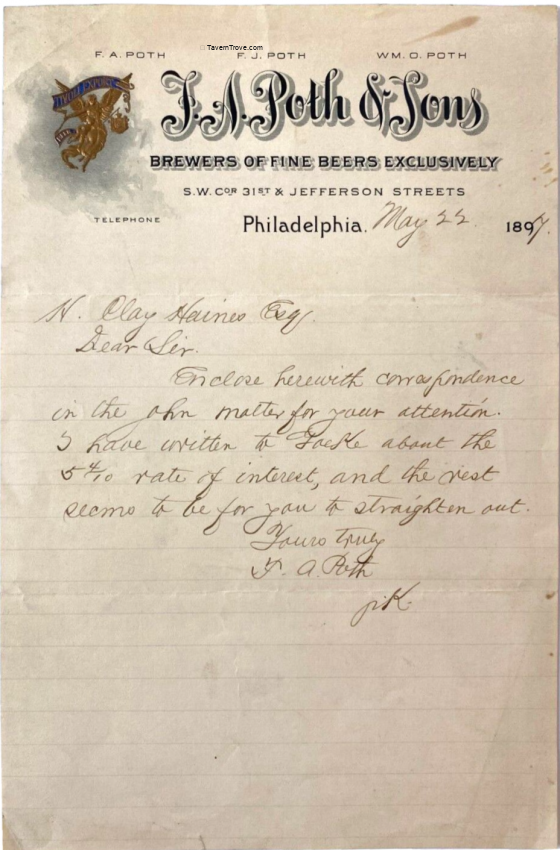 TavernTrove.com
F. A. POTH F. J. POTH WM. O. POTH
F. A. Poth & Sons
TIVOLI EXPORT
BREWERS OF FINE BEERS EXCLUSIVELY
S.W. COR 31ST & JEFFERSON STREETS
TELEPHONE
Philadelphia, May 22 1897.
H. Clay Haines Esq.
Dear Sir.
Enclose herewith correspondence
in the matter for your attention.
I have written to about the
rate of interest, and the rest
seems to be for you to straighten out.
Yours truly
F. A. Poth